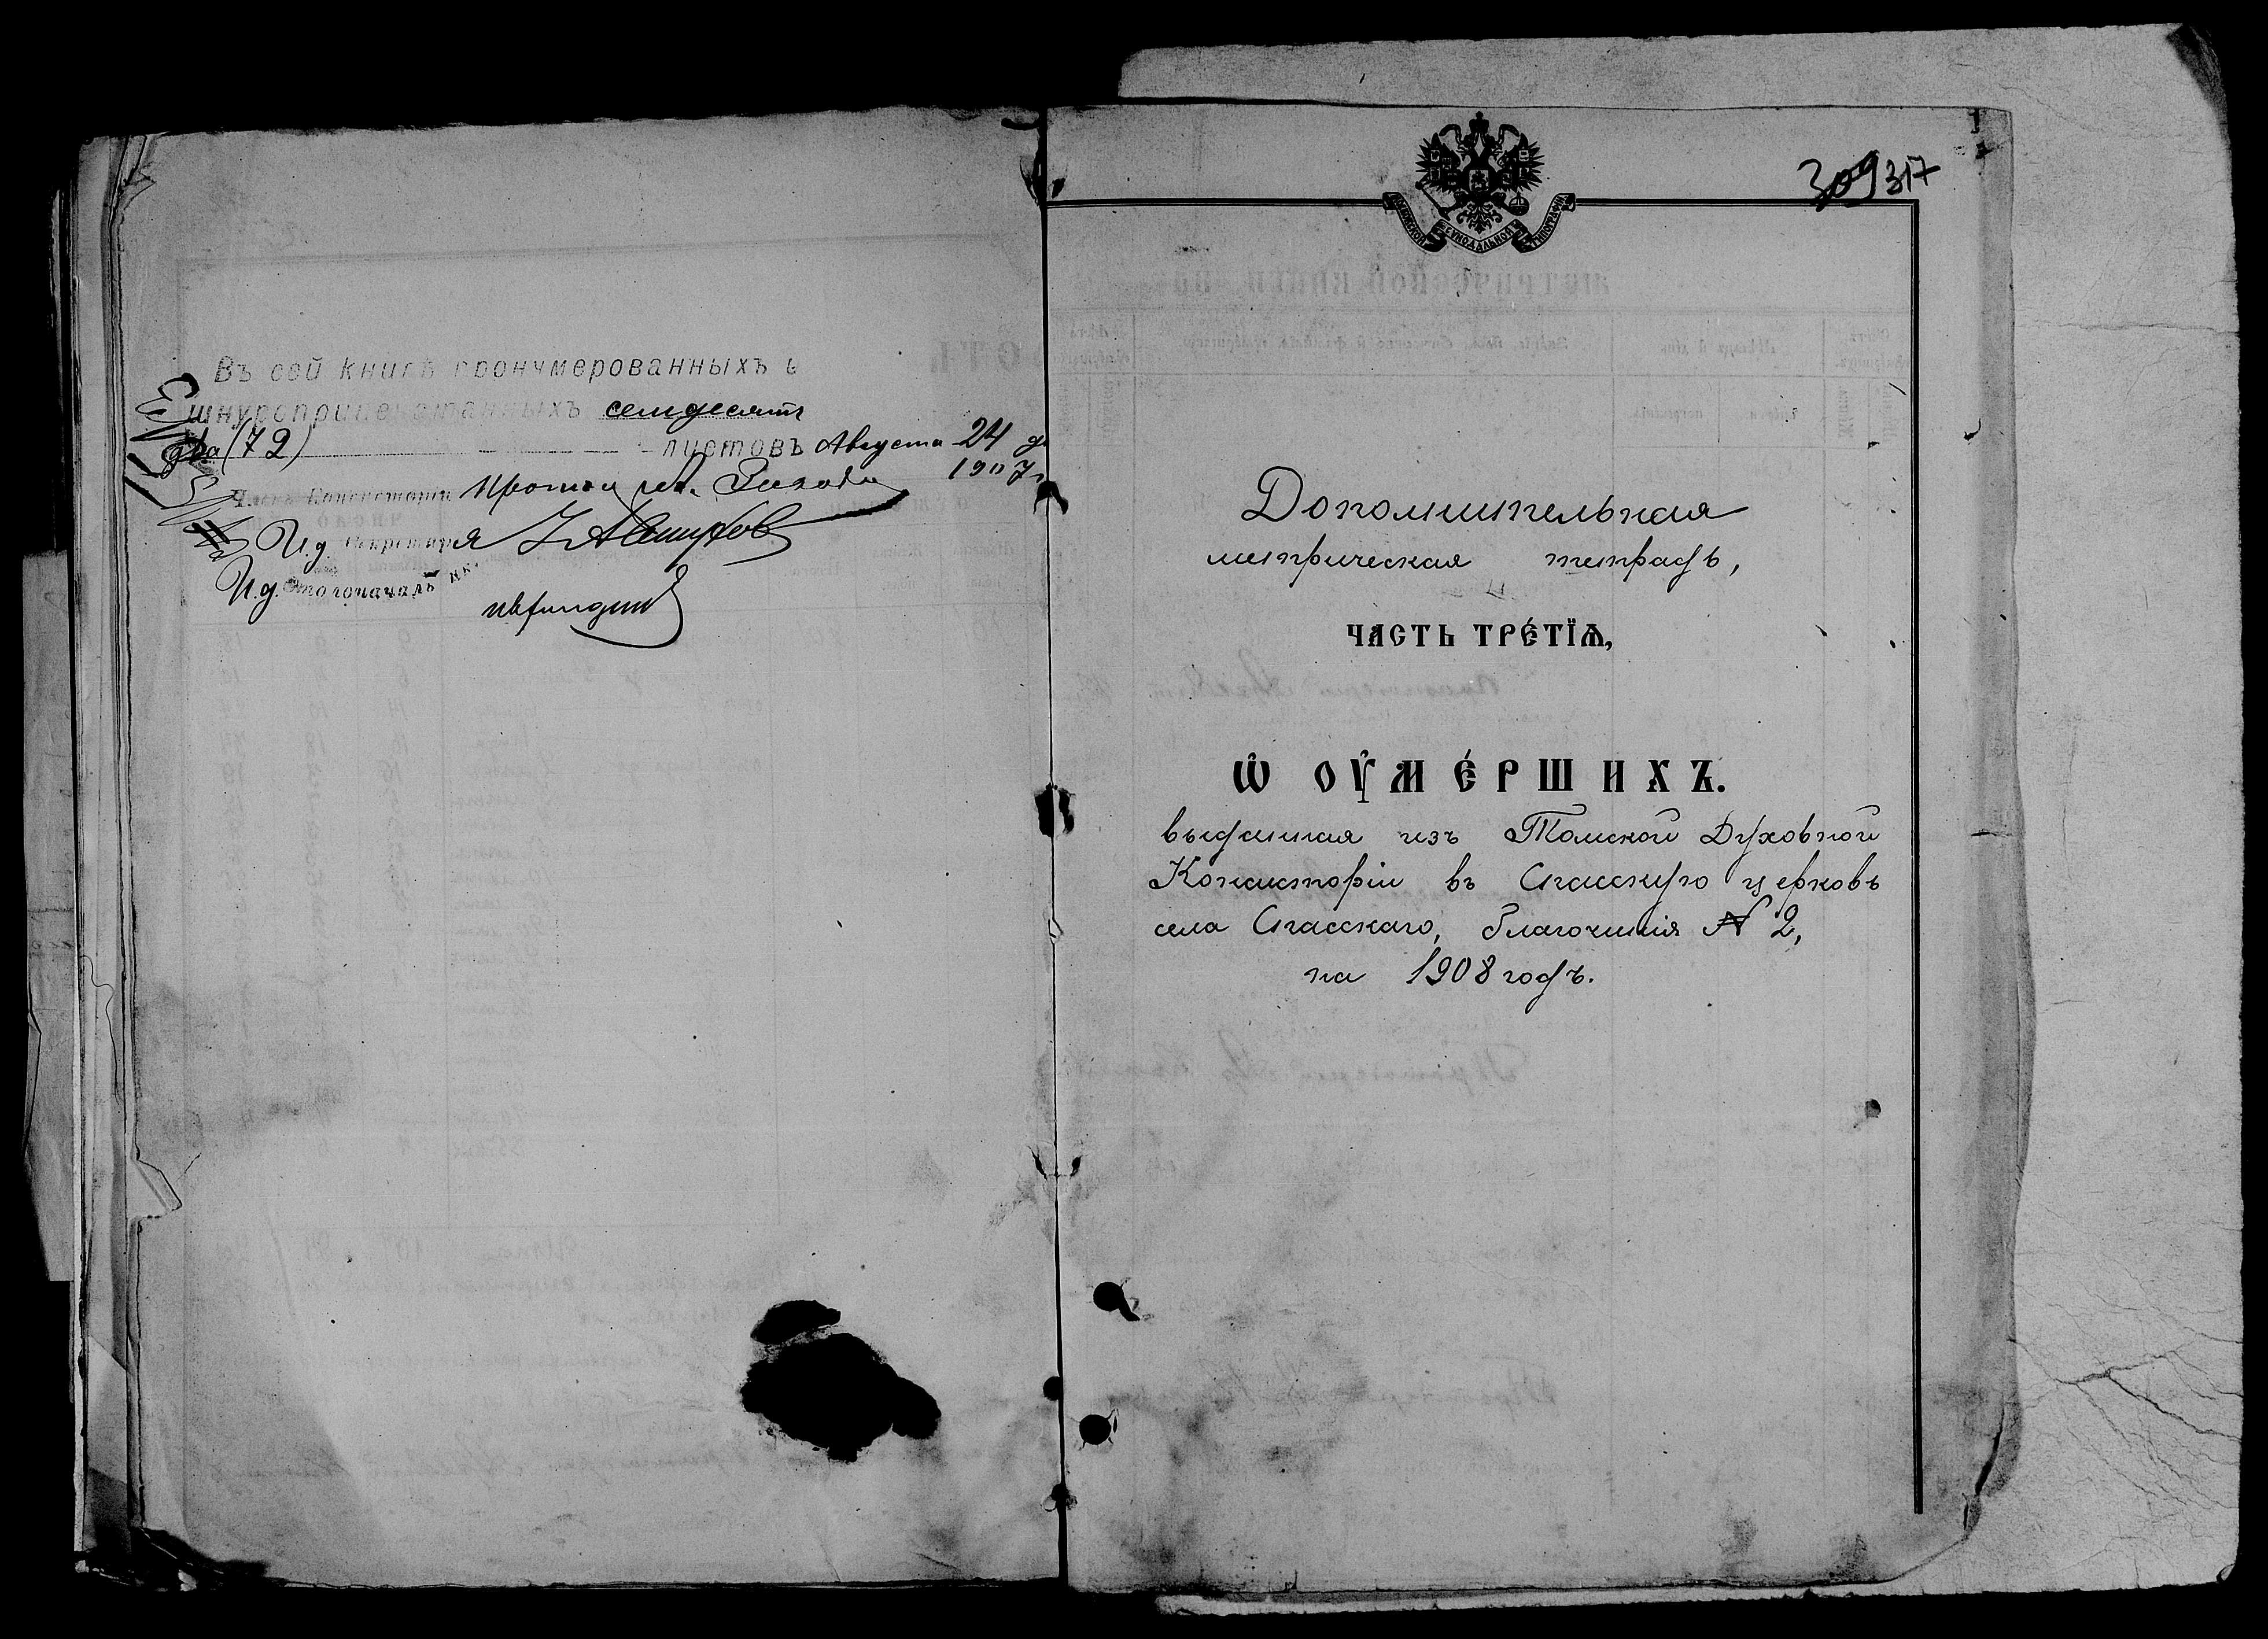 Въ сей книгѣ пронумерованныхъ и
шнуроприпечатанныхъ семдесятъ
два (72) листовъ Августа 24 д.
1907 г.
Членъ Консисторіи
И.д. Секретаря
И.д. Столоначальника
309 317
СѴНОДАЛЬНОЙ
Дополнительная
метрическая тетрадь,
ЧАСТЬ ТРЕ́ТЇѦ,
Ѡ҆ ОУ҆МЕ́РШИХЪ.
выданная изъ Томской Духовной
Консисторіи въ Спасскую церковь
села Спасскаго, благочинія № 2,
на 1908 годъ.